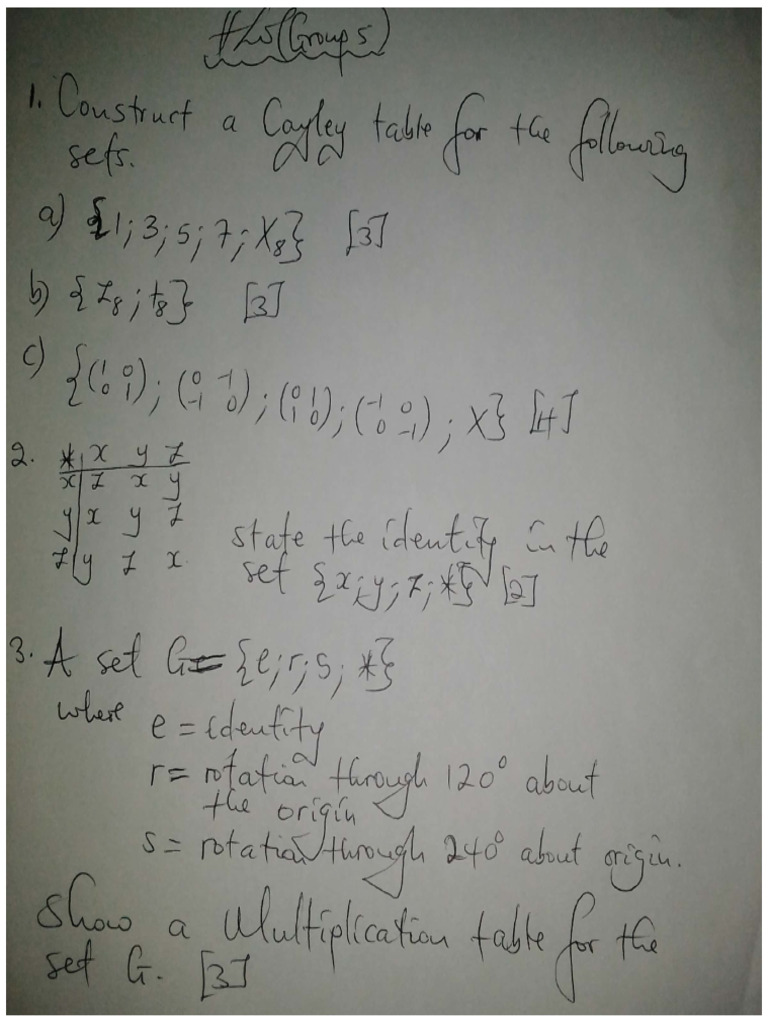 #L5(Groups)
1. Construct a Cayley table for the following
sets.
a) {1; 3; 5; 7; X₈} [3]
b) {Z₈; +₈} [3]
c) {(1 0
0 1); (0 -1
-1 0); (0 1
1 0); (-1 0
0 -1); X} [4]
2. * x y z
x z x y
y x y z
z y z x
state the identity in the
set {x; y; z; *} [2]
3. A set G = {e; r; s; *}
where e = identity
r = rotation through 120° about
the origin
s = rotation through 240° about origin.
Show a Multiplication table for the
set G. [3]